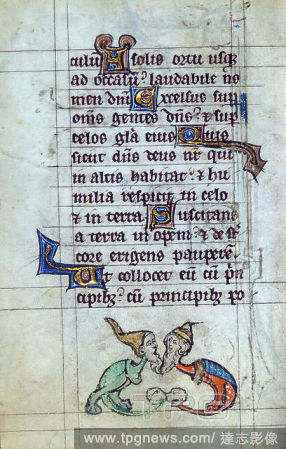 culum A solis ortu usq
ad occasū? laudabile no
men dnī Excelsus sup
om̄s gentes dn̄s? & sup
celos gl̄a eius Quis
sicut dn̄s deus nr̄ qui
in altis habitat? & hu
milia respicit in celo
& in terra Suscitans
a terra in opem? & de st̄
core erigens pauperē
Ut collocet eū cū pn̄
cipib3? cū principib3 po
www.tpgnews.com/ 達志影像